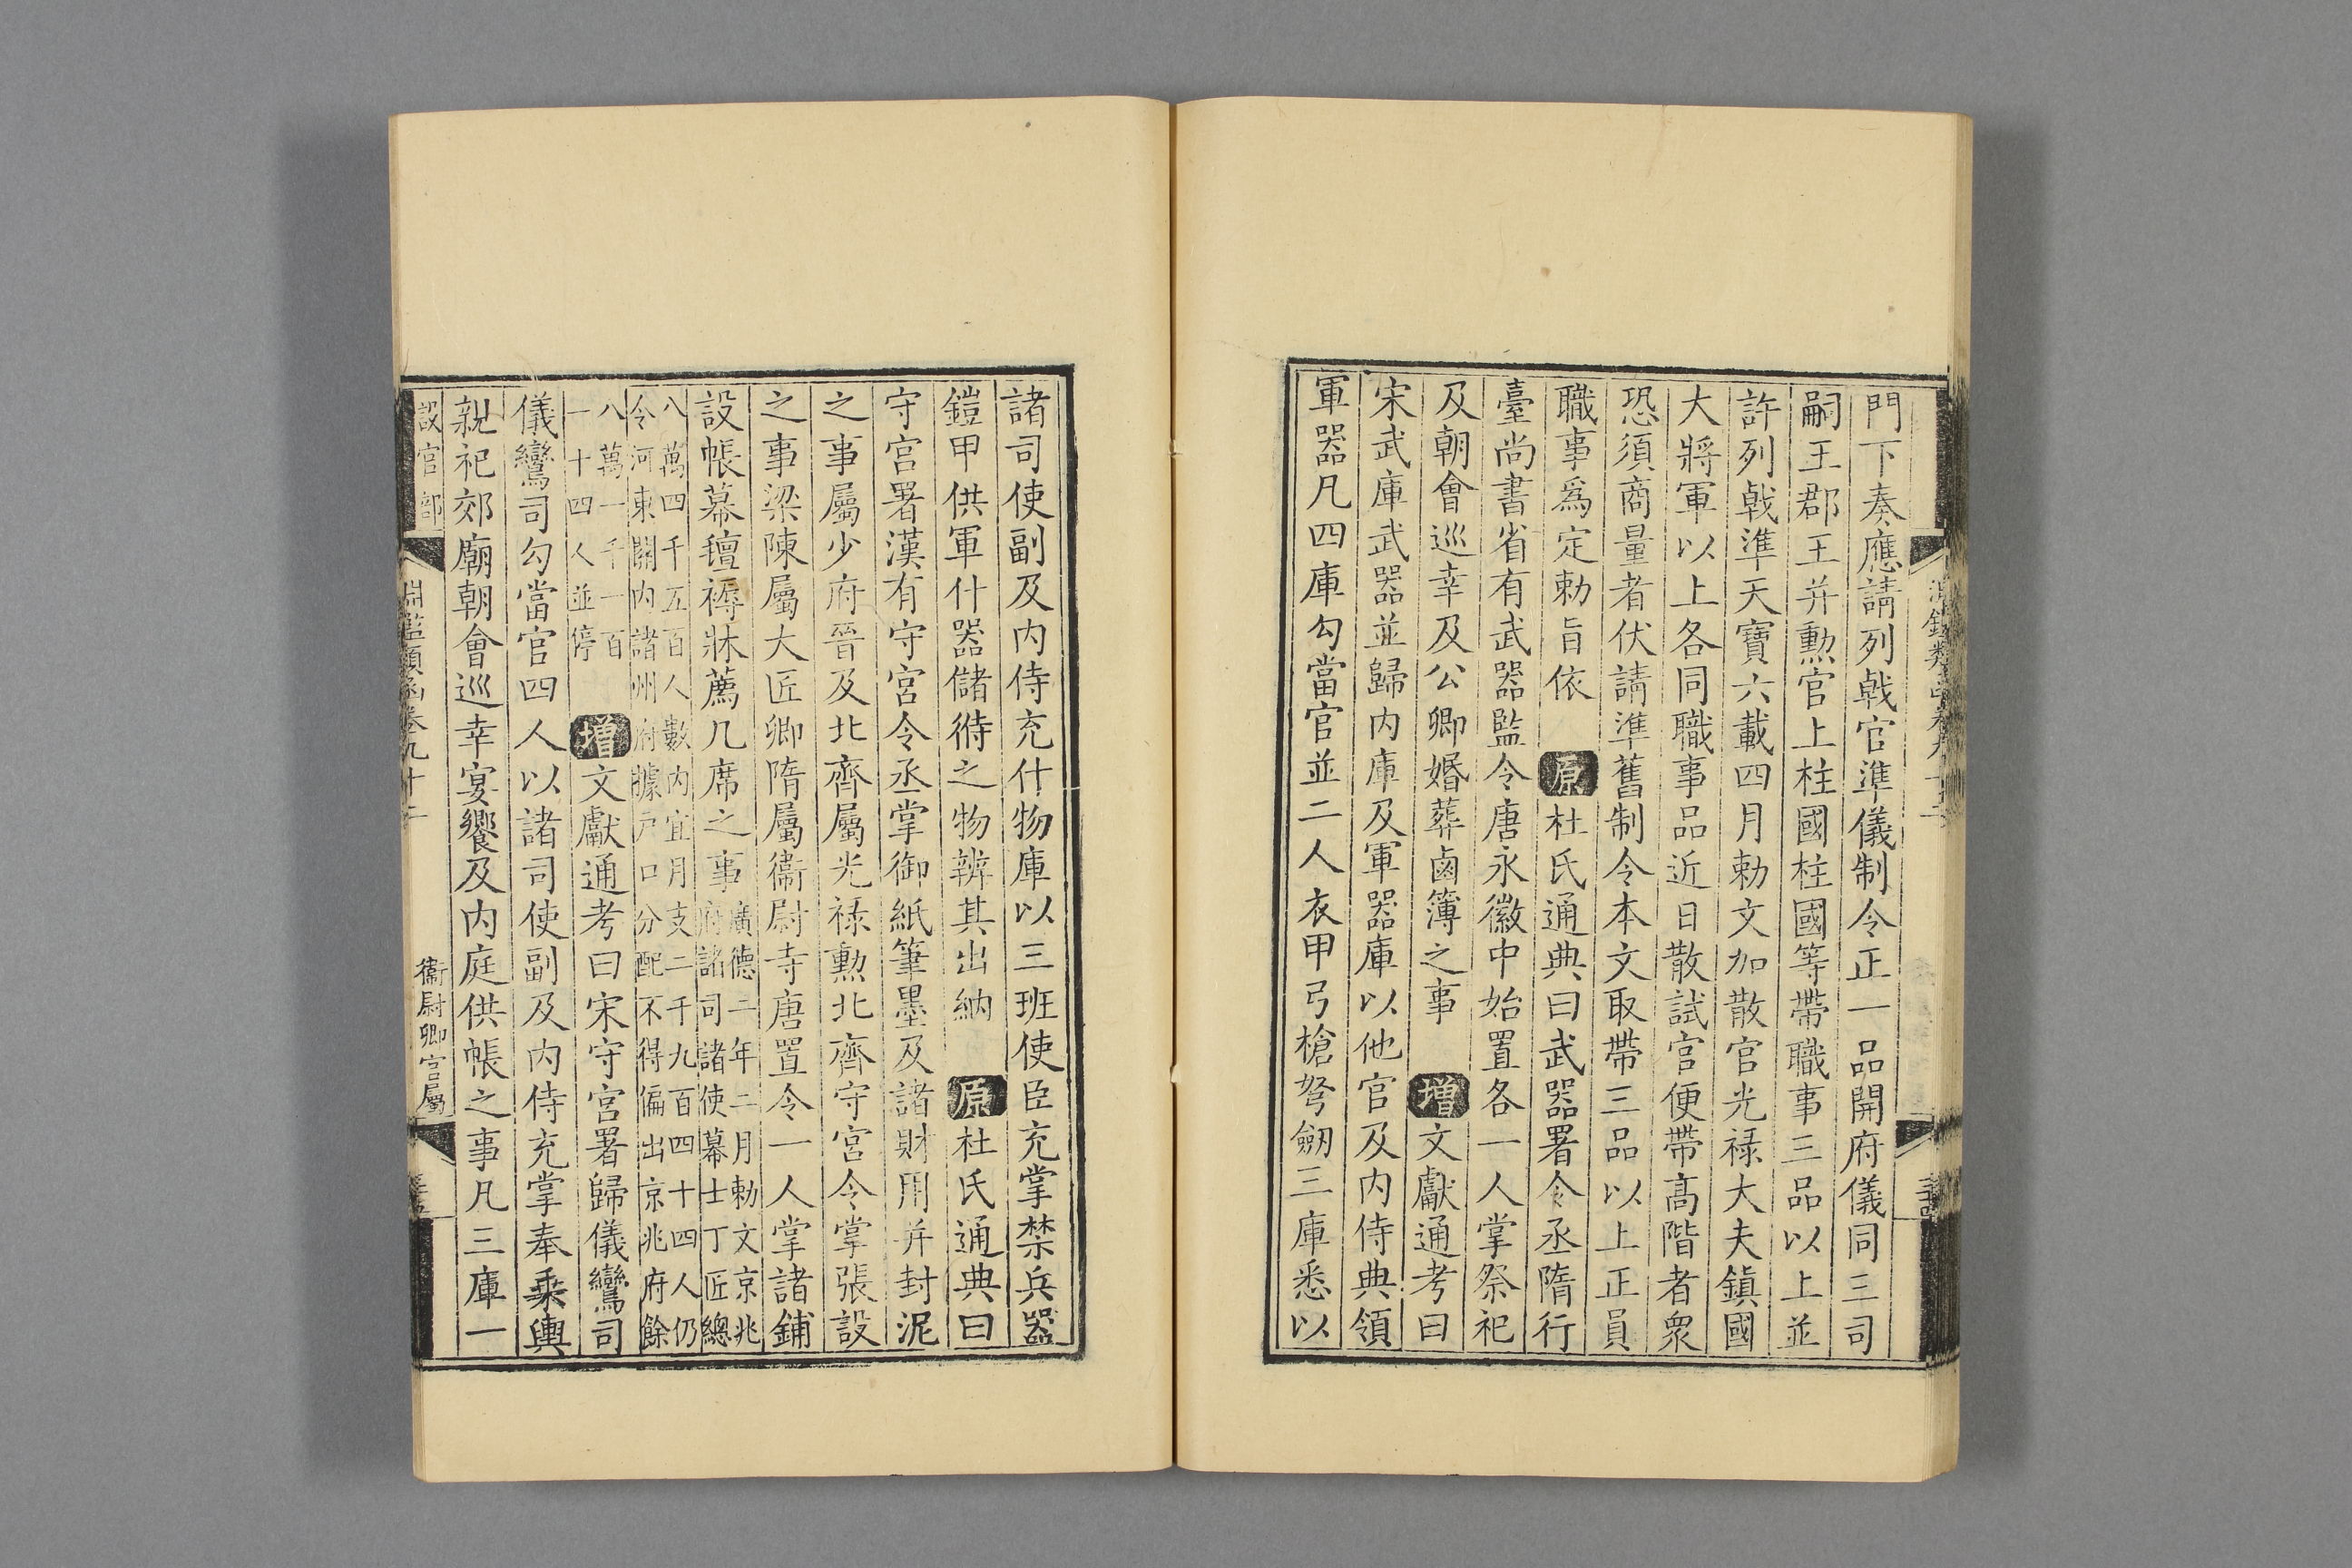 門下奏應請列戟官準儀制令正一品開府儀同三司
嗣王郡王并勲官上柱國柱國等帶職事三品以上並
許列戟準天寶六載四月勅文加散官光祿大夫鎮國
大將軍以上各同職事品近日散試官便帶高階者衆
恐須商量者伏請準舊制令本文取帶三品以上正員
職事爲定勅旨依 原 杜氏通典曰武器署令丞隋行
臺尚書省有武器監令唐永徽中始置各一人掌祭祀
及朝會巡幸及公卿婚葬鹵簿之事 增 文獻通考曰
宋武庫武器並歸内庫及軍器庫以他官及内侍典領
軍器凡四庫勾當官並二人衣甲弓槍弩劒三庫悉以
諸司使副及内侍充什物庫以三班使臣充掌禁兵器
鎧甲供軍什器儲待之物辨其出納 原 杜氏通典曰
守宮署漢有守宮令丞掌御紙筆墨及諸財用并封泥
之事屬少府晉及北齊屬光祿勲北齊守宮令掌張設
之事梁陳屬大匠卿隋屬衞尉寺唐置令一人掌諸鋪
設帳幕氊褥牀薦几席之事 廣德二年二月勅文京兆
府諸司諸使幕士丁匠總
八萬四千五百人數内宜月支二千九百四十四人仍
令河東關内諸州府據戸口分配不得偏出京兆府餘
八萬一千一百
一十四人並停 增 文獻通考曰宋守宮署歸儀鸞司
儀鸞司勾當官四人以諸司使副及内侍充掌奉乘輿
親祀郊廟朝會巡幸宴饗及内庭供帳之事凡三庫一
設官部 淵鑑類函卷九十二 衞尉卿官屬